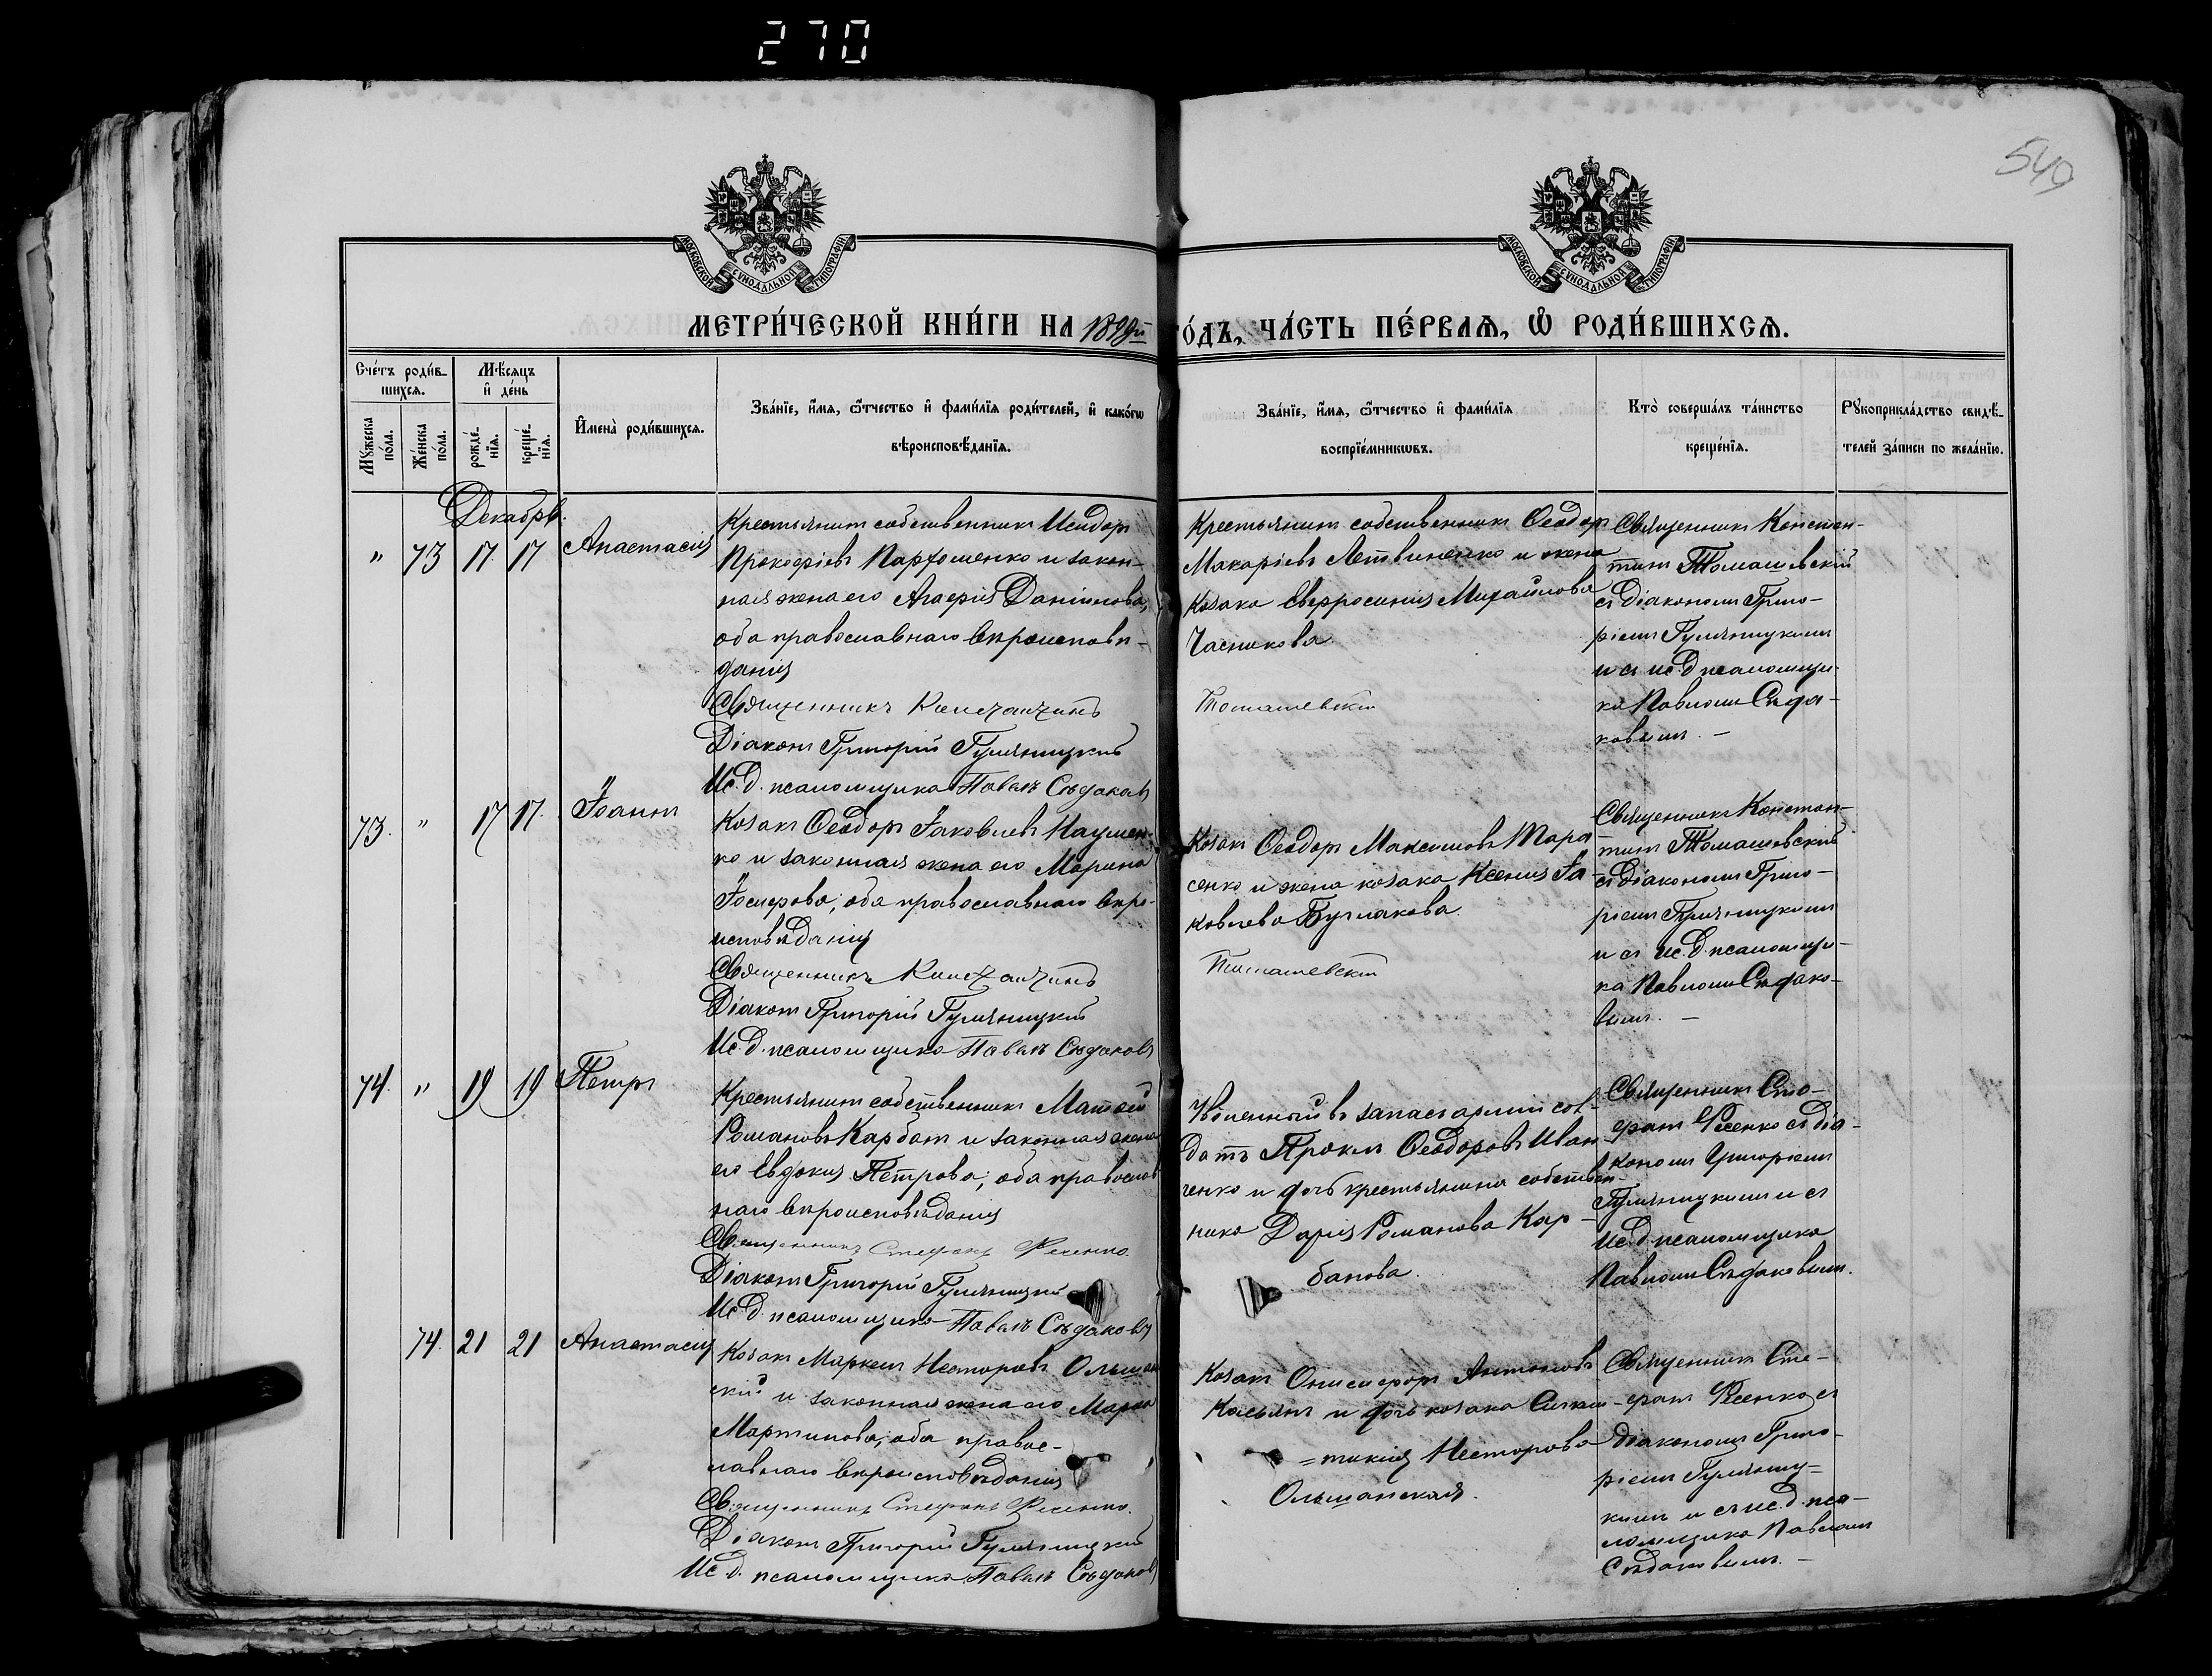 270
549
МОСКОВСКОЙ СѴНОДАЛЬНОЙ ТИПОГРАФІИ
МОСКОВСКОЙ СѴНОДАЛЬНОЙ ТИПОГРАФІИ
МЕТРИ́ЧЕСКОЙ КНИ́ГИ НА
ГО́ДЪ, ЧА́СТЬ ПЕ́РВАЯ, Ѽ РОДИ́ВШИХСѦ.
Сче́тъ роди́в-
шихсѧ.
Мꙋ́жеска по́ла.
Же́нска по́ла.
Мѣ́сѧцъ
и҆ де́нь
рожде́-
нїѧ.
креще́-
нїѧ.
И҆мена̀ роди́вшихсѧ.
Зва́нїе, и҆́мѧ, ѻ҆́тчество и҆ фами́лїѧ роди́телей, и҆ како́гѡ
вѣроисповѣ́данїѧ.
Зва́нїе, и҆́мѧ, ѻ҆́тчество и҆ фами́лїѧ
воспрїе́мникѡвъ.
Кто̀ соверша́лъ та́инство
креще́нїѧ.
Рꙋкоприкла́дство свидѣ́-
телей за́писи по жела́нїю.
Декабрь.
" 73 17 17 Анастасія
Крестьянинъ собственникъ Исидоръ
Прокофіевъ Парфоменко и закон-
ная жена его Агафія Даніилова,
оба православнаго вѣроисповѣ-
данія
Священникъ Константинъ
Діаконъ Григорій Гумяницкій
Ис.д. псаломщика Павелъ Сѣдаковъ
Крестьянинъ собственникъ Ѳеодоръ
Макаріевъ Летвиненко и жена
Козака Евфросинія Михайлова
Часникова
Томашевскій
Священникъ Констан-
тинъ Томашевскій
съ діакономъ Григо-
ріемъ Гумяницкимъ
и съ ис.д. псаломщи-
ка Павломъ Сѣда-
ковымъ. –
73. " 17 17. Іоаннъ
Козакъ Ѳеодоръ Іаковлевъ Наумен-
ко и законная жена его Марина
Іосифова, оба православнаго вѣро-
исповѣданія
Священникъ Константинъ
Діаконъ Григорій Гумяницкій
Ис.д. псаломщика Павелъ Сѣдаковъ
Козакъ Ѳеодоръ Максимовъ Тара-
сенко и жена козака Ксенія Іа-
ковлева Бурлакова.
Томашевскій
Священникъ Констан-
тинъ Томашевскій
съ діакономъ Григо-
ріемъ Гумяницкимъ
и съ ис.д. псаломщи-
ка Павломъ Сѣдако-
вымъ. –
74. " 19 19 Петръ
Крестьянинъ собственникъ Матѳей
Романовъ Карбанъ и законная жена
его Евдокія Петрова, оба православ
наго вѣроисповѣданія
Священникъ Стефанъ Фесенко
Діаконъ Григорій Гумяницкій
Ис.д. псаломщика Павелъ Сѣдаковъ
Уволенный въ запасъ арміи сол-
датъ Проклъ Ѳеодоровъ Иван
ченко и дочь крестьянина собствен-
ника Дарія Романова Кар-
банова.
Священникъ Сте-
фанъ Фесенко съ діа-
кономъ Григоріемъ
Гумяницкимъ и съ
ис.д. псаломщика
Павломъ Сѣдаковымъ.
74. 21 21 Анастасія
Козакъ Маркелъ Несторовъ Ольшан
скій и законная жена его Марѳа
Мартинова, оба право-
славнаго вѣроисповѣданія
Священникъ Стефанъ Фесенко.
Діаконъ Григорій Гумяницкій
Ис.д. псаломщика Павелъ Сѣдаковъ
Козакъ Онисифоръ Антоновъ
Касьянъ и дочь козака Синкли-
=тикія Несторова
Ольшанская.
Священникъ Сте-
фанъ Фесенко съ
діакономъ Григо-
ріемъ Гумяниц-
кимъ и съ ис.д. пса-
ломщика Павломъ
Сѣдаковымъ. –